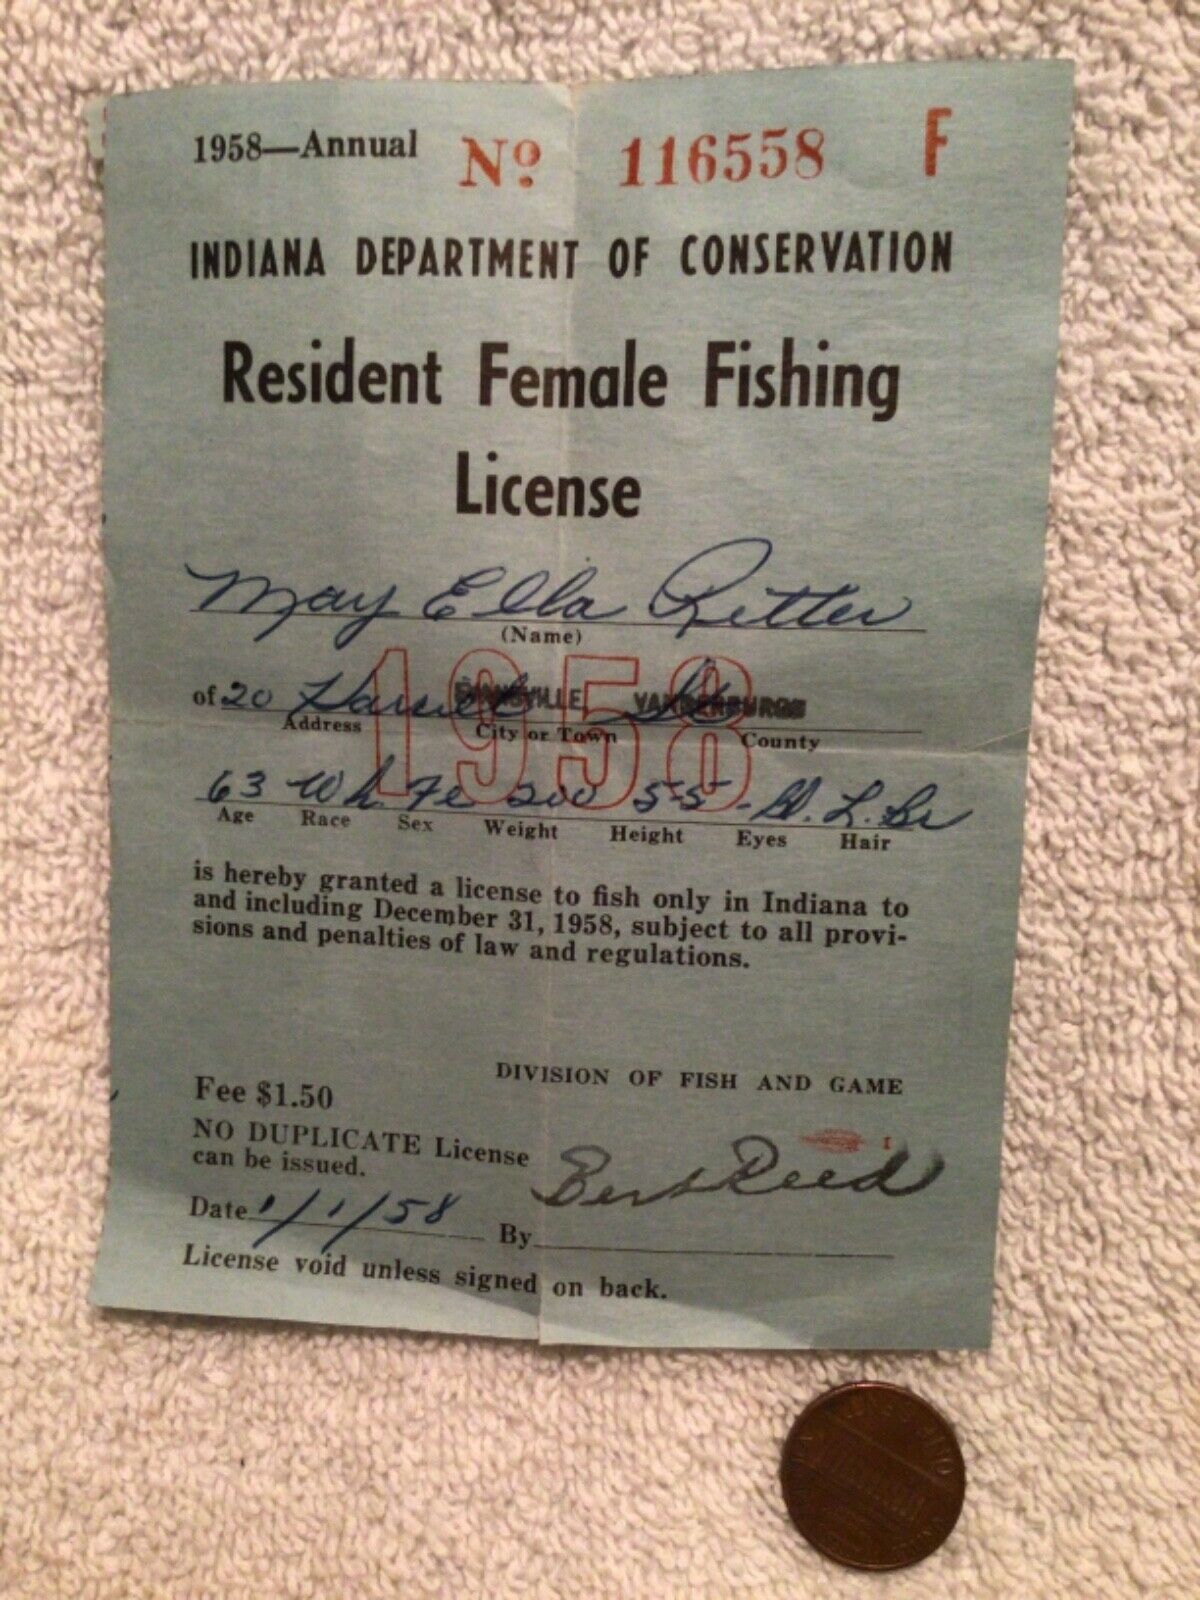 1958—Annual Nº 116558 F
INDIANA DEPARTMENT OF CONSERVATION
Resident Female Fishing
License
May Ella Ritter
(Name)
of 20 EVANSVILLE VANDERBURGH St
Address City or Town County
1958
63 Wh Fe 200 5-5- Bl. L. Br
Age Race Sex Weight Height Eyes Hair
is hereby granted a license to fish only in Indiana to
and including December 31, 1958, subject to all provi-
sions and penalties of law and regulations.
DIVISION OF FISH AND GAME
Fee $1.50
NO DUPLICATE License
can be issued.
Bert Reed
Date 1/1/58 By
License void unless signed on back.